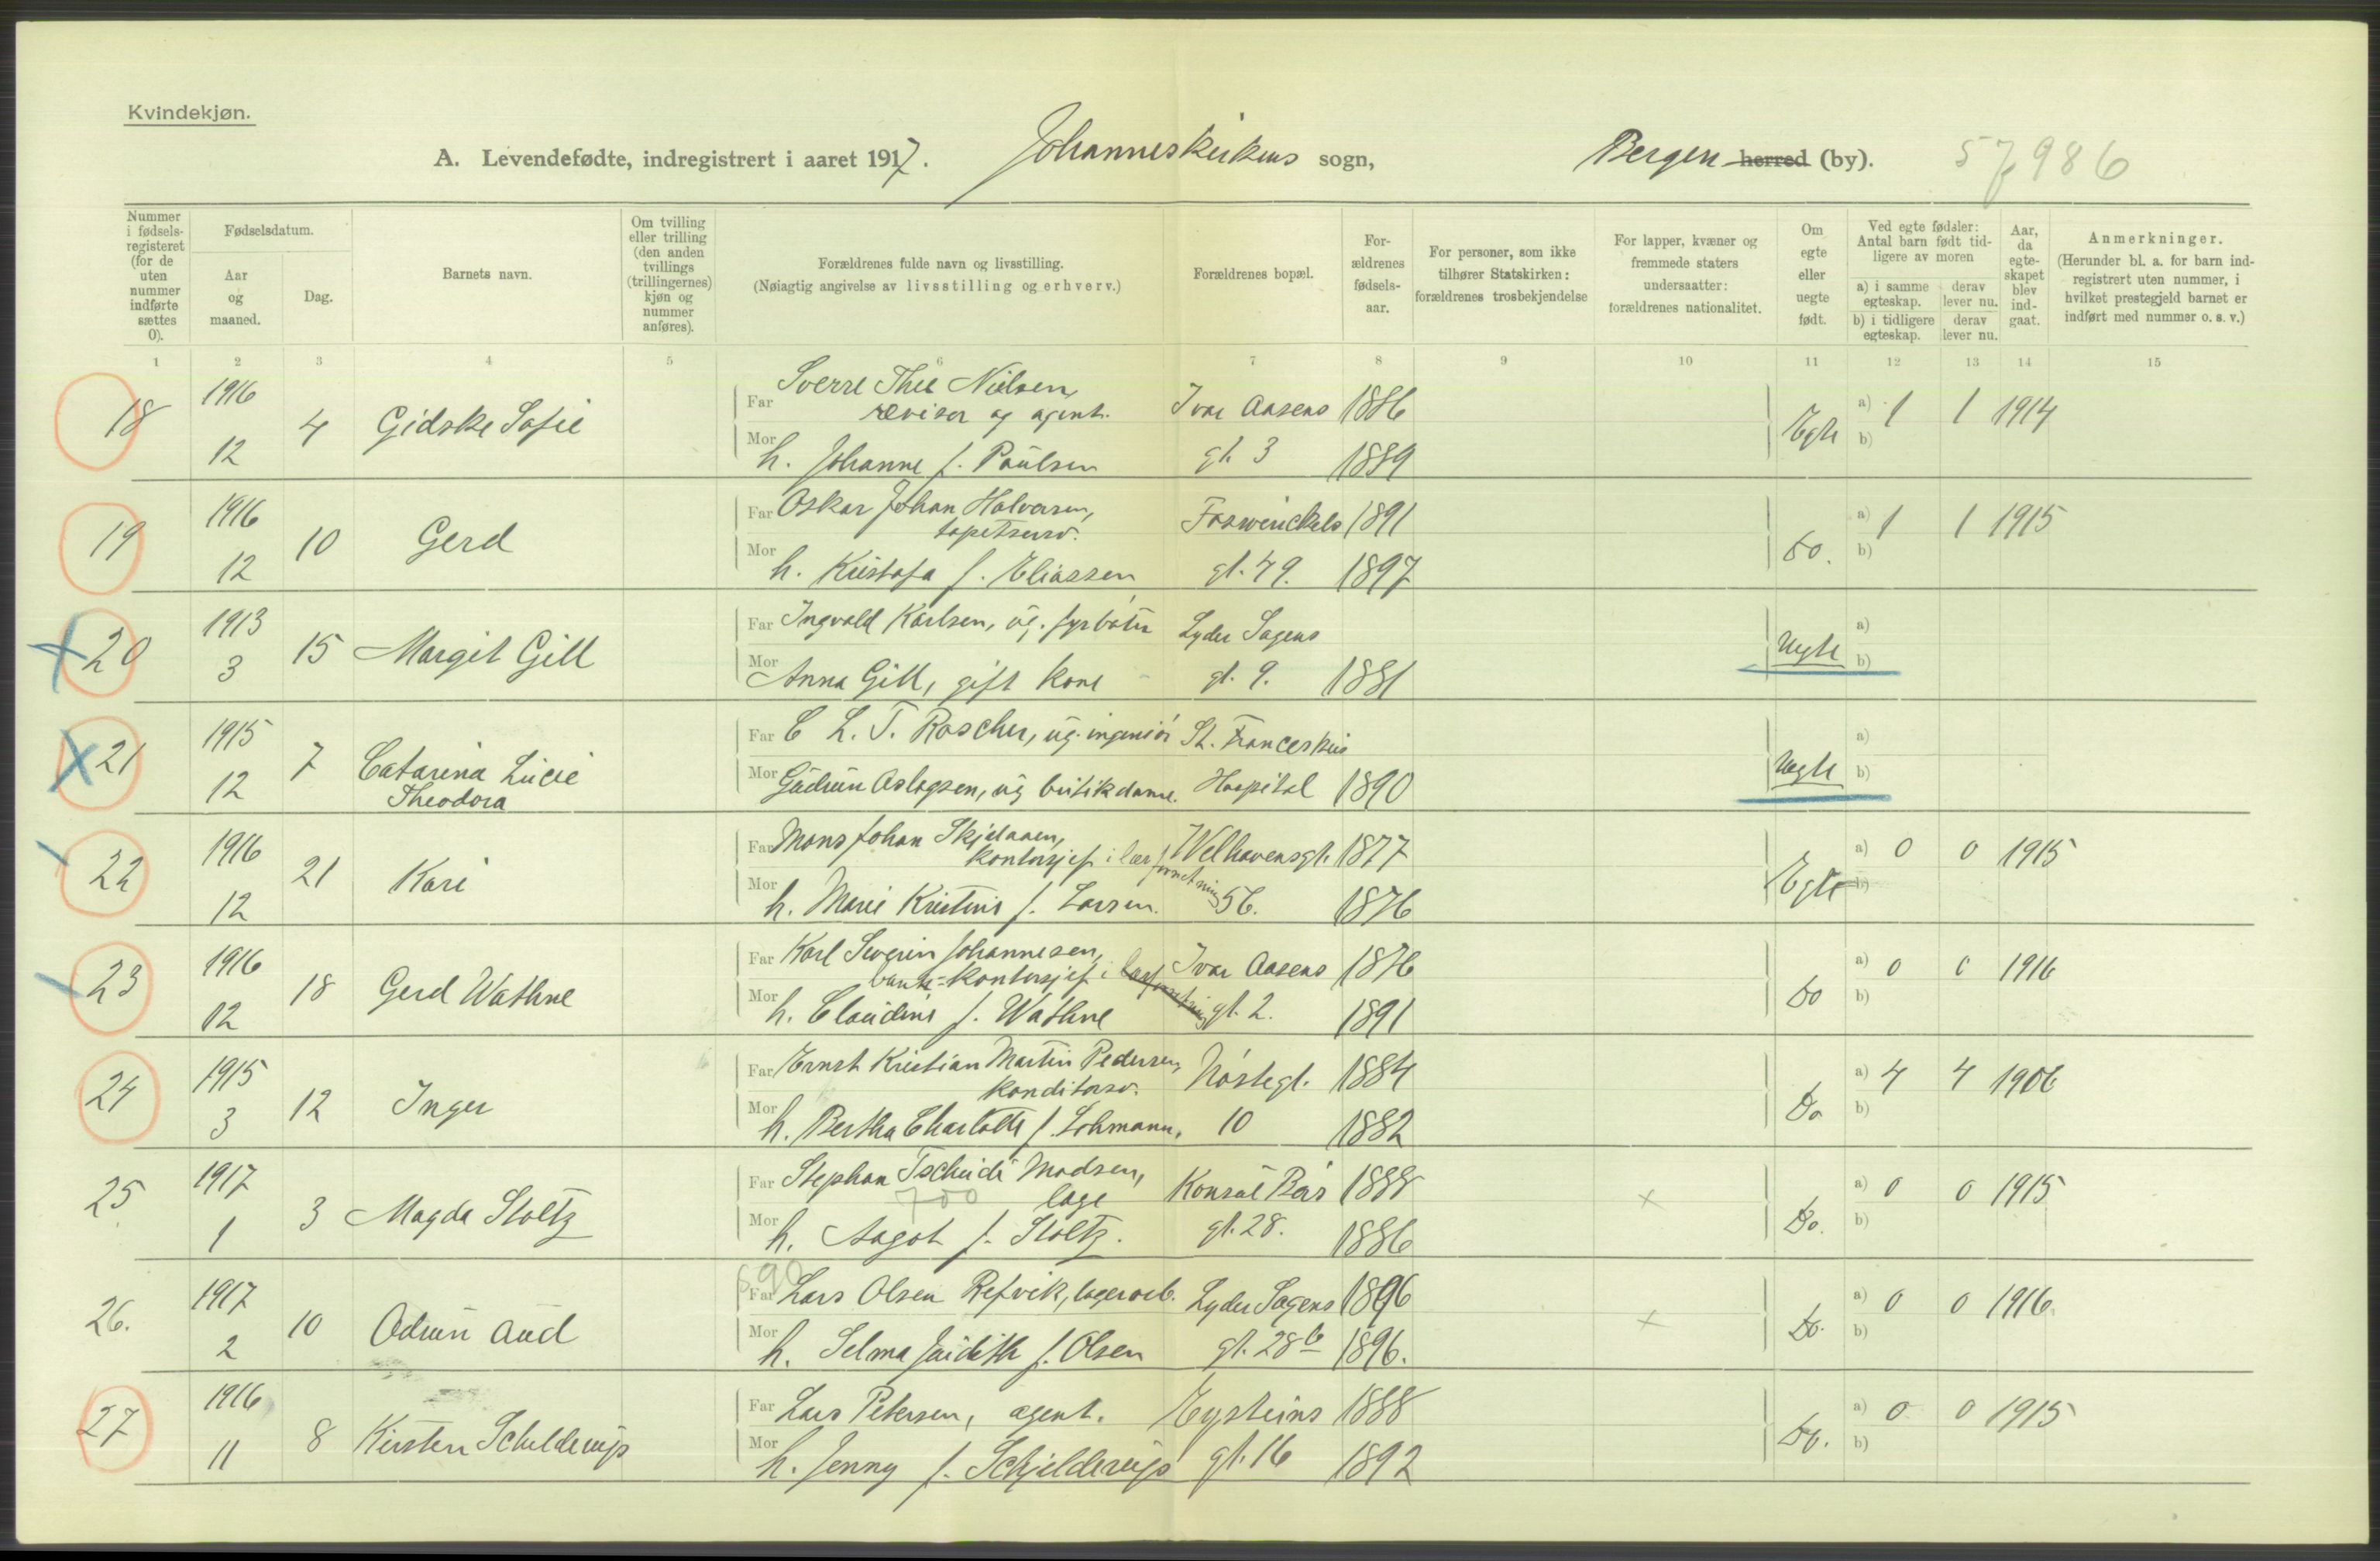 Kvindekjøn.
A. Levendefødte, indregistrert i aaret 1917. Johanneskirkens sogn, Bergen herred (by). 57986
Nummer i fødsels-registeret (for de uten nummer indførte sættes 0).
Fødselsdatum.
Aar og maaned.
Dag.
Barnets navn.
Om tvilling eller trilling (den anden tvillings (trillingernes) kjøn og nummer anføres).
Forældrenes fulde navn og livsstilling.
(Nøiagtig angivelse av livsstilling og erhverv.)
Forældrenes bopæl.
For-ældrenes fødsels-aar.
For personer, som ikke tilhører Statskirken: forældrenes trosbekjendelse
For lapper, kvæner og fremmede staters undersaatter: forældrenes nationalitet.
Om egte eller uegte født.
Ved egte fødsler: Antal barn født tid-ligere av moren
a) i samme egteskap. derav lever nu.
b) i tidligere egteskap. derav lever nu.
Aar, da egte-skapet blev ind-gaat.
Anmerkninger.
(Herunder bl. a. for barn ind-registrert uten nummer, i hvilket prestegjeld barnet er indført med nummer o. s. v.)
1 2 3 4 5 6 7 8 9 10 11 12 13 14 15
18 1916 12 4 Gidske Sofie
Far Sverre Nielsen, revisor og agent. Ivar Aasens 1886
Mor h. Johanne f. Paulsen gt. 3 1889
Egte a) 1 1 1914
b)
19 1916 12 10 Gerd
Far Oskar Johan Halvorsen, tapetserer. Foswinckels 1891
Mor h. Kristofa f. Eliassen gt. 49. 1897
do. a) 1 1 1915
b)
20 1913 3 15 Margit Gill
Far Ingvald Karlsen, ug. fyrbøter Lyder Sagens
Mor Anna Gill, gift kone gt. 9. 1881
Uegte a)
b)
21 1915 12 7 Catarina Lucie Theodora
Far C. L. T. Roscher, ug. ingeniør St. Franceskus
Mor Gudrun Aslagsen, ug butikdame. Hospital 1890
Uegte a)
b)
22 1916 12 21 Kari
Far Mons Johan Skjelaaen, kontorsjef i lærforretning Welhavensgt. 1877
Mor h. Marie Kristine f. Larsen. 56. 1876
Egte a) 0 0 1915
b)
23 1916 12 18 Gerd Wathne
Far Karl Severin Johannesen, bank-kontorsjef i lærforretning Ivar Aasens 1876
Mor h. Claudine f. Wathne gt. 2. 1891
do a) 0 0 1916
b)
24 1915 3 12 Inger
Far Ernst Kristian Martin Pedersen, konditorsv. Nøstegt. 1884
Mor h. Bertha Charlotte f. Lohmann. 10 1882
Do a) 4 4 1906
b)
25 1917 1 3 Magda Stoltz
Far Stephan Tschudi Madsen, læge Konsul Børs 1888
700
Mor h. Aagot f. Stoltz. gt. 28. 1886
x Do. a) 0 0 1915
b)
26. 1917 2 10 Odrun Aud
690
Far Lars Olsen Refvik, lagerarb. Lyder Sagens 1896
Mor h. Selma Judith f. Olsen gt. 28b 1896.
x Do. a) 0 0 1916.
b)
27 1916 11 8 Kirsten Schelderup
Far Lars Petersen, agent. Eysteins 1888
Mor h. Jenny f. Schjelderup gt. 16 1892
Do. a) 0 0 1915
b)